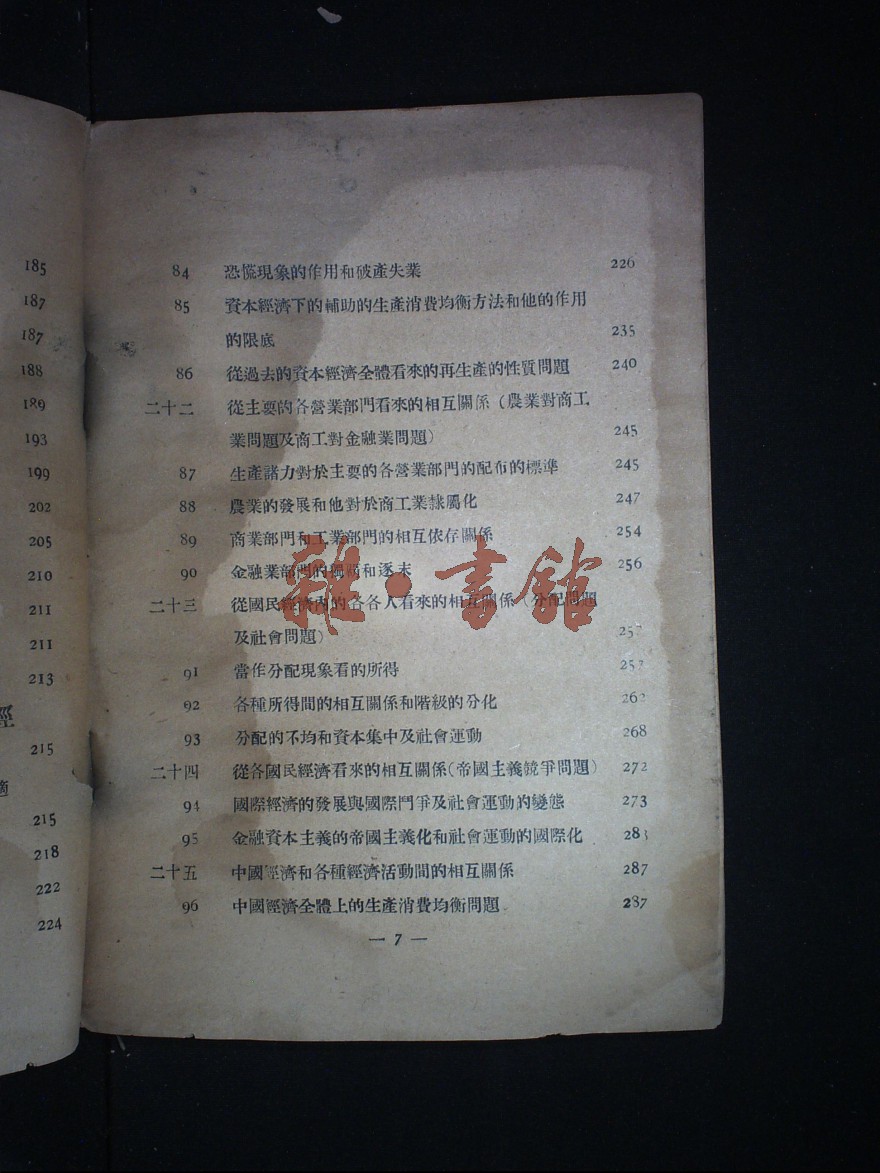 185
187
187
188
189
193
199
202
205
210
211
211
213
經
215
適
215
218
222
224
84 恐慌現象的作用和破產失業 226
85 資本經濟下的輔助的生產消費均衡方法和他的作用
的限底 235
86 從過去的資本經濟全體看來的再生產的性質問題 240
二十二 從主要的各營業部門看來的相互關係(農業對商工
業問題及商工對金融業問題) 245
87 生產諸力對於主要的各營業部門的配布的標準 245
88 農業的發展和他對於商工業隸屬化 247
89 商業部門和工業部門的相互依存關係 254
90 金融業部門的獨霸和逐末 256
二十三 從國民經濟內的各各人看來的相互關係(分配問題
及社會問題) 25
91 當作分配現象看的所得 25
92 各種所得間的相互關係和階級的分化 262
93 分配的不均和資本集中及社會運動 268
二十四 從各國民經濟看來的相互關係(帝國主義競爭問題) 272
94 國際經濟的發展與國際鬥爭及社會運動的變態 273
95 金融資本主義的帝國主義化和社會運動的國際化 283
二十五 中國經濟和各種經濟活動間的相互關係 287
96 中國經濟全體上的生產消費均衡問題 287
— 7 —
雜·書館